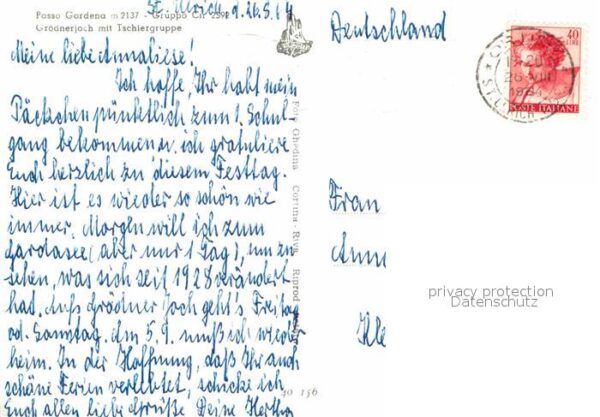 St. Ulrich d. 26.8.64
Passo Gardena m 2137 - Gruppo Cir 2592
Grödnerjoch mit Tschiergruppe
Meine liebe Annaliese!
Ich hoffe, Ihr habt mein
Päckchen pünktlich zum 1. Schul-
gang bekommen u. ich gratuliere
Euch herzlich zu diesem Festtag.
Hier ist es wieder so schön wie
immer. Morgen will ich zum
Gardasee (aber nur 1 Tag), um zu
sehen, was sich seit 1928 verändert
hat. Aufs Grödner Joch geht's Freitag
od. Samstag. Am 5.9. muß ich wieder
heim. In der Hoffnung, daß Ihr auch
schöne Ferien verlebtet, schicke ich
Euch allen liebe Grüße Deine Hertha
Foto Ghedina Cortina - Riva Riprod
30 156
Deutschland
40
LIRE
POSTE ITALIANE
ORTISEI
26 VIII
1964
ST. ULRICH
Frau
Anne
privacy protection
Datenschutz